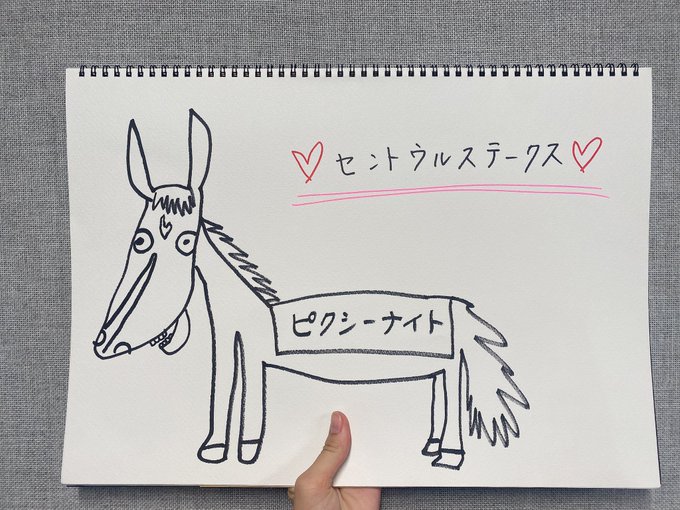 ♡セントウルステークス♡
ピクシーナイト